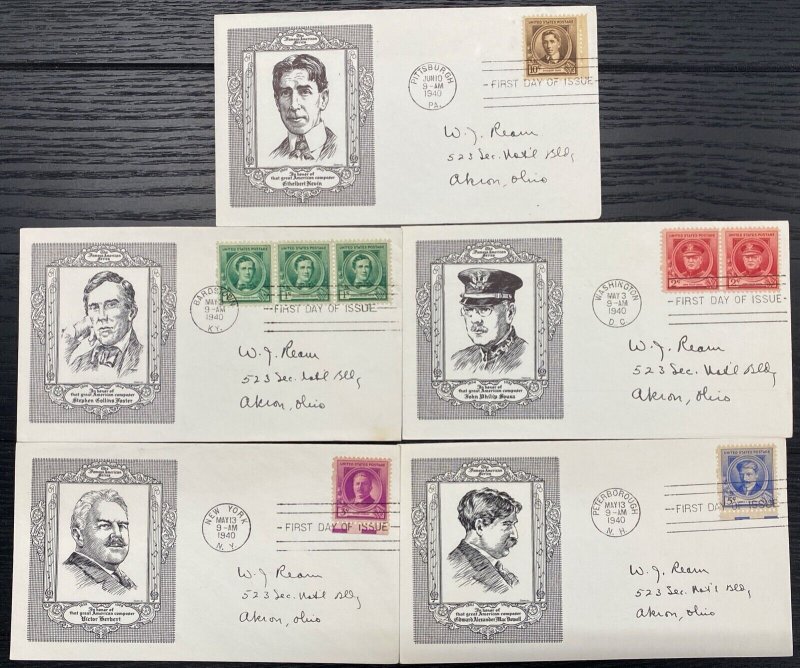 The
Famous American
Series
In honor of
that great American composer
Ethelbert Nevin
PITTSBURGH
JUN 10
9-AM
1940
PA.
FIRST DAY OF ISSUE
UNITED STATES POSTAGE
10¢
W. J. Ream
523 Sec. Nat'l Bldg
Akron, Ohio
The
Famous American
Series
In honor of
that great American composer
Stephen Collins Foster
MAY 3
9-AM
1940
KY.
FIRST DAY OF ISSUE
UNITED STATES POSTAGE
UNITED STATES POSTAGE
UNITED STATES POSTAGE
1¢
1¢
1¢
W. J. Ream
523 Sec. Natl Bldg
Akron, Ohio
The
Famous American
Series
In honor of
that great American composer
John Philip Sousa
WASHINGTON
MAY 3
9-AM
1940
D.C.
FIRST DAY OF ISSUE
UNITED STATES POSTAGE
UNITED STATES POSTAGE
2¢
2¢
W. J. Ream
523 Sec. Nat'l Bldg
Akron, Ohio
The
Famous American
Series
In honor of
that great American composer
Victor Herbert
NEW YORK
MAY 13
9-AM
1940
N.Y.
FIRST DAY OF ISSUE
UNITED STATES POSTAGE
3¢
W. J. Ream
523 Sec. Natl Bldg
Akron, Ohio
The
Famous American
Series
In honor of
that great American composer
Edward Alexander MacDowell
PETERBOROUGH
MAY 13
9-AM
1940
N.H.
FIRST DAY OF ISSUE
UNITED STATES POSTAGE
5¢
W. J. Ream
523 Sec. Nat'l Bldg
Akron, Ohio